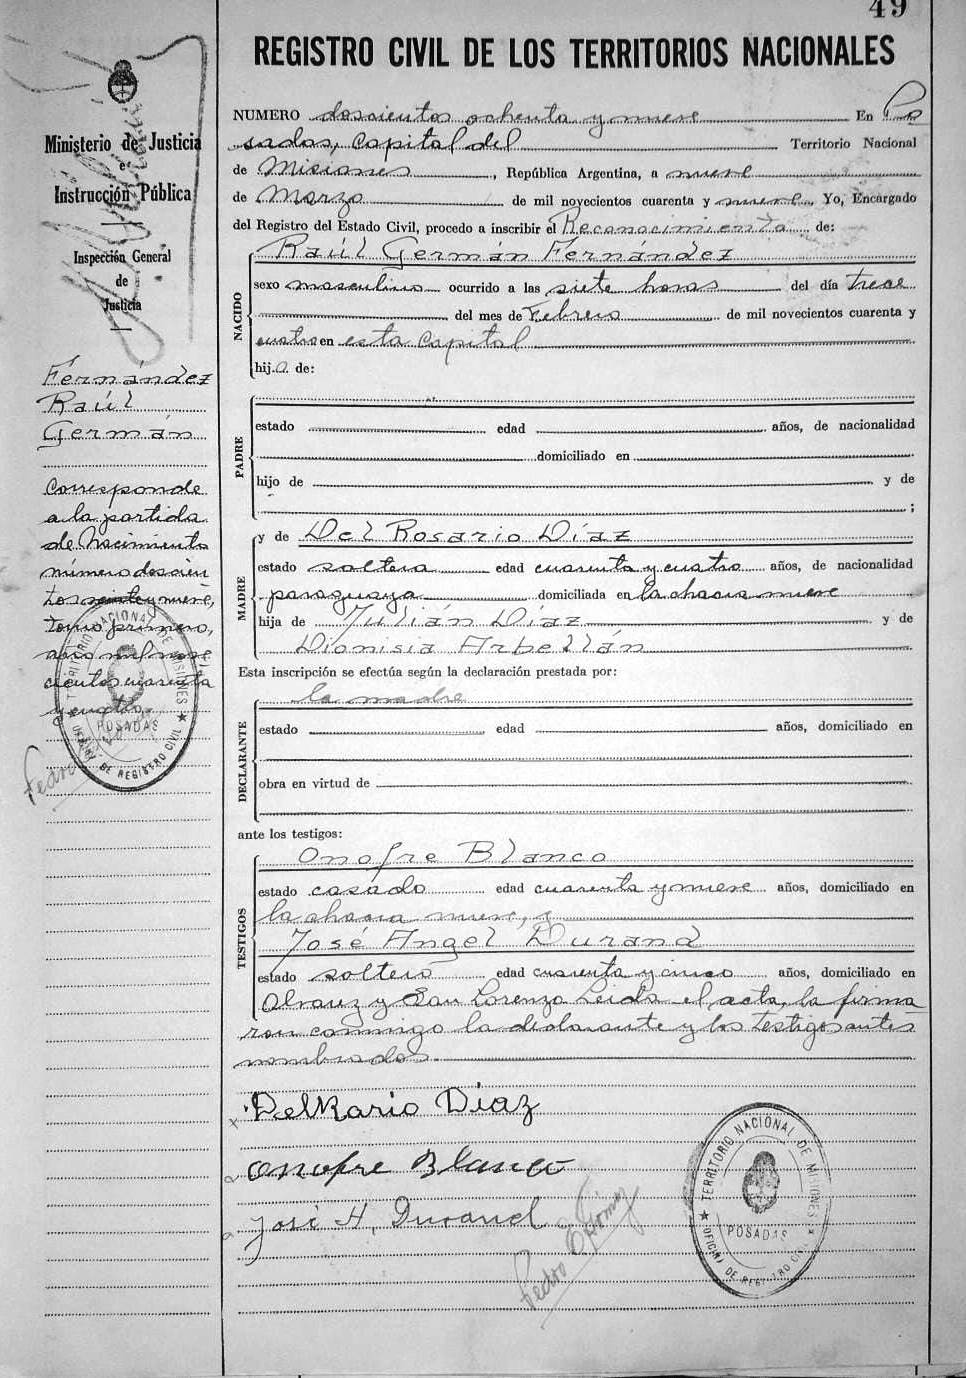 49
REGISTRO CIVIL DE LOS TERRITORIOS NACIONALES
Ministerio de Justicia
e
Instrucción Pública
Inspección General
de
Justicia
Fernández
Raúl
Germán
Corresponde
a la partida
de Nacimiento
número doscien
tos veinte y nueve,
tomo primero,
año mil nove
cientos cuarenta
y cuatro.
TERRITORIO NACIONAL DE MISIONES
POSADAS
OFICINA DE REGISTRO CIVIL
Pedro
NUMERO doscientos ochenta y nueve En Po
sadas, capital del Territorio Nacional
de Misiones, República Argentina, a nueve
de Marzo de mil novecientos cuarenta y nueve, Yo, Encargado
del Registro del Estado Civil, procedo a inscribir el Reconocimiento de:
NACIDO
Raúl Germán Fernández
sexo masculino ocurrido a las siete horas del día trece
del mes de Febrero de mil novecientos cuarenta y
cuatro en esta capital
hijo de:
PADRE
estado edad años, de nacionalidad
domiciliado en
hijo de y de
;
MADRE
y de Del Rosario Díaz
estado soltera edad cuarenta y cuatro años, de nacionalidad
paraguaya domiciliada en la chacra nueve
hija de Julián Díaz y de
Dionisia Arbellán
Esta inscripción se efectúa según la declaración prestada por:
DECLARANTE
la madre
estado edad años, domiciliado en
obra en virtud de
ante los testigos:
TESTIGOS
Onofre Blanco
estado casado edad cuarenta y nueve años, domiciliado en
la chacra nueve, y
José Angel Durand
estado soltero edad cuarenta y cinco años, domiciliado en
Alvarez y San Lorenzo Leída el acta, la firma
ron conmigo la declarante y los testigos antes
nombrados.
DelRario Díaz
Onofre Blanco
José A. Durand
Pedro E Gómez
TERRITORIO NACIONAL DE MISIONES
POSADAS
OFICINA DE REGISTRO CIVIL